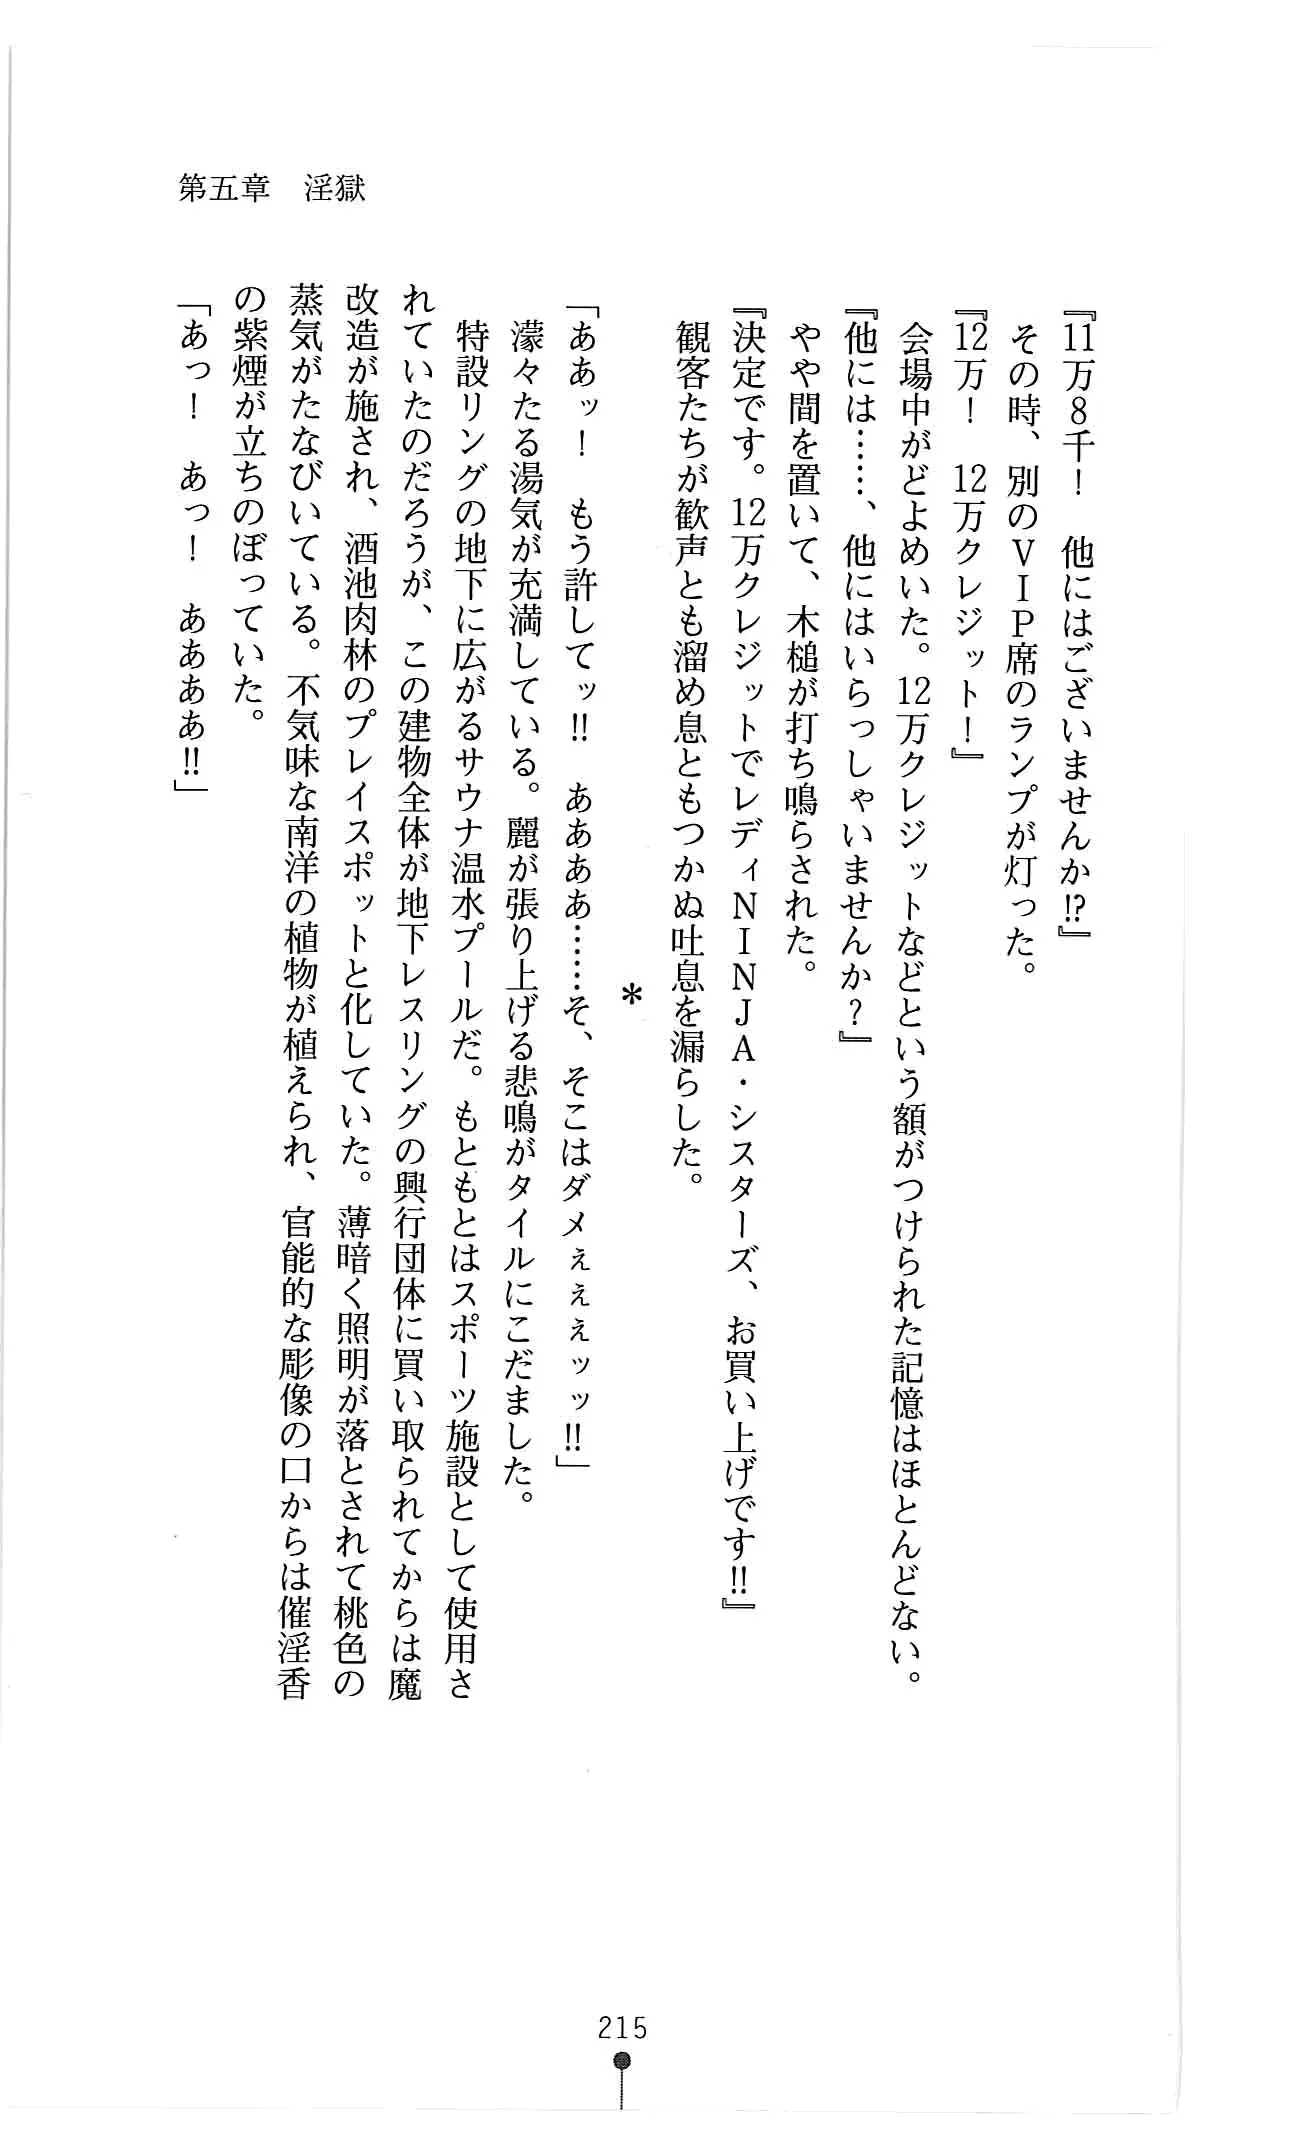 第五章　淫獄
『11万8千！　他にはございませんか⁉』
その時、別のVIP席のランプが灯った。
『12万！　12万クレジット！』
会場中がどよめいた。12万クレジットなどという額がつけられた記憶はほとんどない。
『他には……、他にはいらっしゃいませんか？』
やや間を置いて、木槌が打ち鳴らされた。
『決定です。12万クレジットでレディNINJA・シスターズ、お買い上げです‼』
観客たちが歓声とも溜め息ともつかぬ吐息を漏らした。
＊
「ああッ！　もう許してッ‼　ああああ……そ、そこはダメぇぇぇッッ‼」
濛々たる湯気が充満している。麗が張り上げる悲鳴がタイルにこだました。
特設リングの地下に広がるサウナ温水プールだ。もともとはスポーツ施設として使用さ
れていたのだろうが、この建物全体が地下レスリングの興行団体に買い取られてからは魔
改造が施され、酒池肉林のプレイスポットと化していた。薄暗く照明が落とされて桃色の
蒸気がたなびいている。不気味な南洋の植物が植えられ、官能的な彫像の口からは催淫香
の紫煙が立ちのぼっていた。
「あっ！　あっ！　ああああ‼」
215